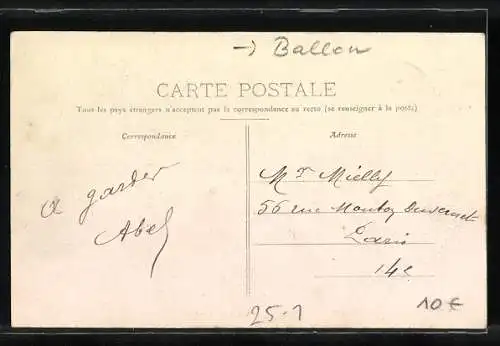 → Ballon
CARTE POSTALE
Tous les pays étrangers n'acceptent pas la correspondance au verso (se renseigner à la poste)
Correspondance
Adresse
a garder
Abel
Mr Mielly
56 rue Mouton Duvernet
Paris
14e
25-1
10€